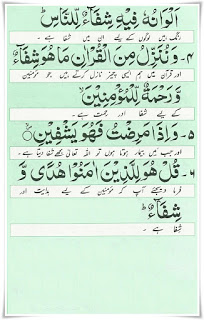 اَلْوَانُهٗ فِیْهِ شِفَآءٌ لِّلنَّاسِ ؕ
رنگ ہیں لوگوں کے لیے اس میں شفا ہے ۔
۴۔ وَنُنَزِّلُ مِنَ الْقُرْاٰنِ مَا هُوَ شِفَآءٌ
اور قرآن میں ہم ایسی چیز نازل کرتے ہیں جو مومنین
وَّرَحْمَةٌ لِّلْمُؤْمِنِیْنَ
کے لیے شفا اور رحمت ہے ۔
۵۔ وَاِذَا مَرِضْتُ فَهُوَ یَشْفِیْنِ
اور جب میں بیمار ہوتا ہوں تو اللہ تعالیٰ مجھے شفا دیتا ہے ۔
۶۔ قُلْ هُوَ لِلَّذِیْنَ اٰمَنُوْا هُدًی وَّ
فرما دیجئے آپ کہ مومنین کے لیے ہدایت اور
شِفَآءٌ ؕ
شفا ہے ۔